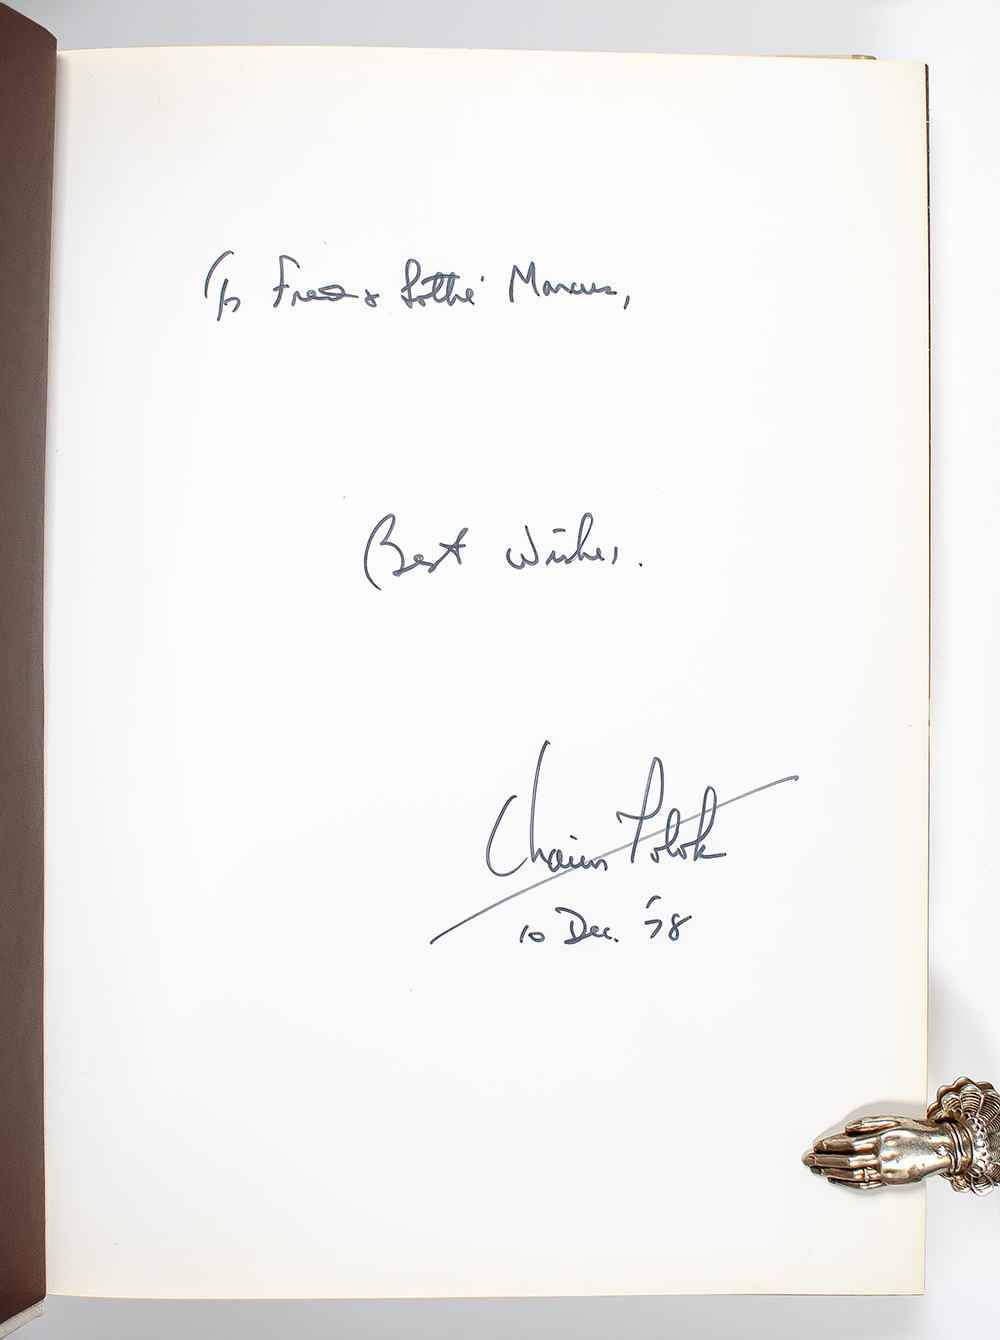 To Fred & Lotte Marcus,
Best Wishes.
Chaim Potok
10 Dec. '78